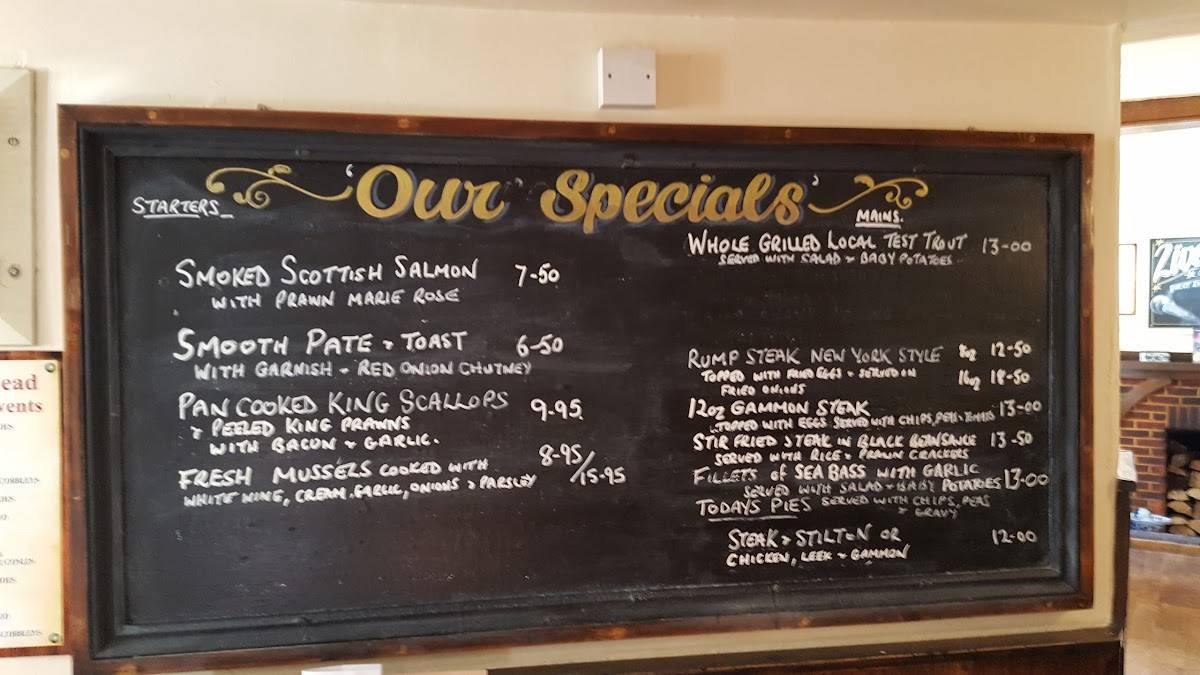 'Our Specials'
STARTERS
SMOKED SCOTTISH SALMON 7-50
WITH PRAWN MARIE ROSE
SMOOTH PATE & TOAST 6-50
WITH GARNISH & RED ONION CHUTNEY
PAN COOKED KING SCALLOPS 9-95
& PEELED KING PRAWNS
WITH BACON & GARLIC.
FRESH MUSSELS COOKED WITH 8-95/15-95
WHITE WINE, CREAM, GARLIC, ONIONS & PARSLEY
MAINS.
WHOLE GRILLED LOCAL TEST TROUT 13-00
SERVED WITH SALAD & BABY POTATOES
RUMP STEAK NEW YORK STYLE 8oz 12-50
TOPPED WITH FRIED EGGS & SERVED ON 16oz 18-50
FRIED ONIONS
12oz GAMMON STEAK 13-00
TOPPED WITH EGGS SERVED WITH CHIPS, PEAS &
STIR FRIED STEAK IN BLACK BEAN SAUCE 13-50
SERVED WITH RICE & PRAWN CRACKERS
FILLETS of SEA BASS WITH GARLIC 13-00
SERVED WITH SALAD & BABY POTATOES
TODAYS PIES SERVED WITH CHIPS, PEAS
& GRAVY
STEAK & STILTON OR 12-00
CHICKEN, LEEK & GAMMON
ead
vents